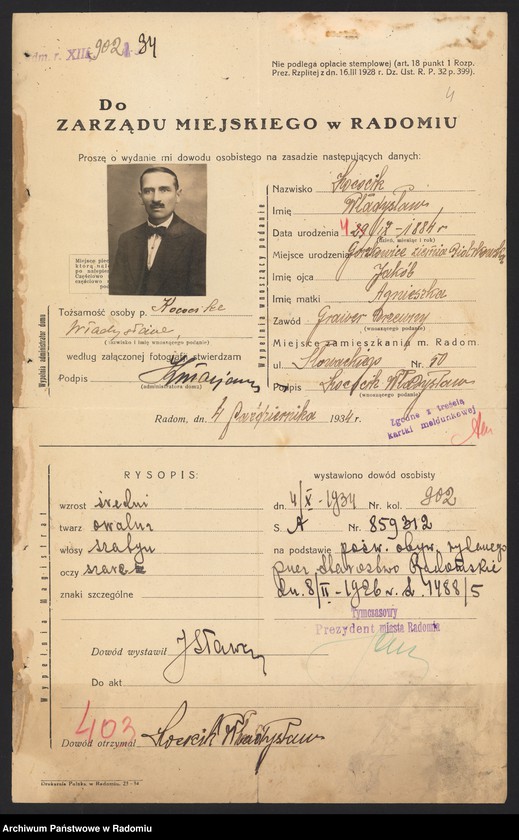 902 34
Nie podlega opłacie stemplowej (art. 18 punkt 1 Rozp.
Prez. Rzplitej z dn. 16.III 1928 r. Dz. Ust. R. P. 32 p. 399).
4
Do
ZARZĄDU MIEJSKIEGO w RADOMIU
Proszę o wydanie mi dowodu osobistego na zasadzie następujących danych:
Nazwisko Kococik
Imię Władysław
Data urodzenia 29 1884 r
(dzień, miesiąc i rok)
Miejsce urodzenia ziemia Piotrkowska
Imię ojca Jakób
Imię matki Agnieszka
Zawód Grawer Drzewny
(wnoszącego podanie)
Miejsce zamieszkania m. Radom.
ul. Słowackiego Nr. 50
Podpis Kococik Władysław
(wnoszącego podanie)
Wypełnia wnoszący podanie
Wypełnia administrator domu
Tożsamość osoby p. Kococika
Władysława
(nazwisko i imię wnoszącego podanie)
według załączonej fotografji stwierdzam
Podpis
(administratora domu)
Radom, dn. 4 Października 1934 r.
Zgodne z treścią
kartki meldunkowej
Wypełnia Magistrat
RYSOPIS:
wzrost średni
twarz owalna
włosy szatyn
oczy szare
znaki szczególne
wystawiono dowód osobisty
dn. 4/X - 1934 Nr. kol. 902
S. A Nr. 859312
na podstawie pośw. obyw. wydanego
przez Starostwo Radomskie
dn. 8/II - 1926 r. L. 1488/5
Tymczasowy
Prezydent miasta Radomia
Dowód wystawił
Do akt
403
Dowód otrzymał Kococik Władysław
Drukarnia Polska w Radomiu. 27-34
Archiwum Państwowe w Radomiu